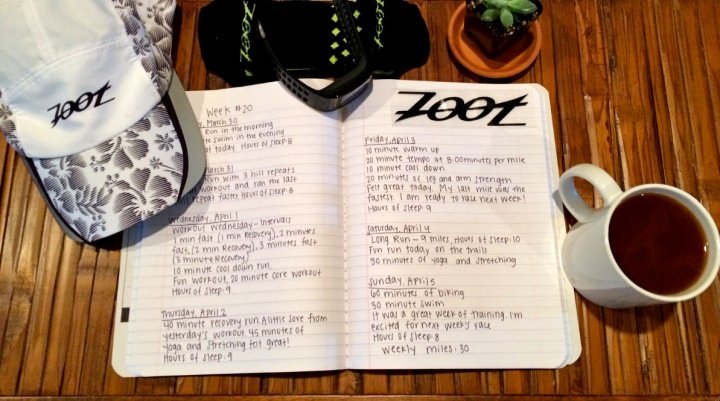 ZOOT
ZOOT
Week #20
March 30
Run in the morning
swim in the evening
today. Hours of sleep: 8
March 31
Run with 3 hill repeats
workout and ran the last
repeat faster. Hours of sleep: 8
Wednesday, April 1
Workout Wednesday - Intervals
1 min fast (1 min Recovery), 2 minutes
fast, (2 min Recovery), 3 minutes fast
(3 minute Recovery)
10 minute cool down run.
Fun workout. 20 minute core workout
Hours of sleep: 9
Thursday, April 2
40 minute recovery run. A little sore from
yesterday's workout. 45 minutes of
yoga and stretching felt great!
Hours of sleep: 9
ZOOT
Friday, April 3
10 minute warm up
20 minute tempo at 8:00 minutes per mile
10 minute cool down
20 minutes of leg and arm strength
Felt great today. My last mile was the
fastest. I am ready to race next week!
Hours of sleep: 9
Saturday, April 4
Long Run - 9 miles, Hours of sleep: 10
Fun run today on the trails
30 minutes of yoga and stretching
Sunday, April 5
60 minutes of biking
30 minute swim
It was a great week of training. I'm
excited for next week's race
Hours of sleep: 8
Weekly miles: 30